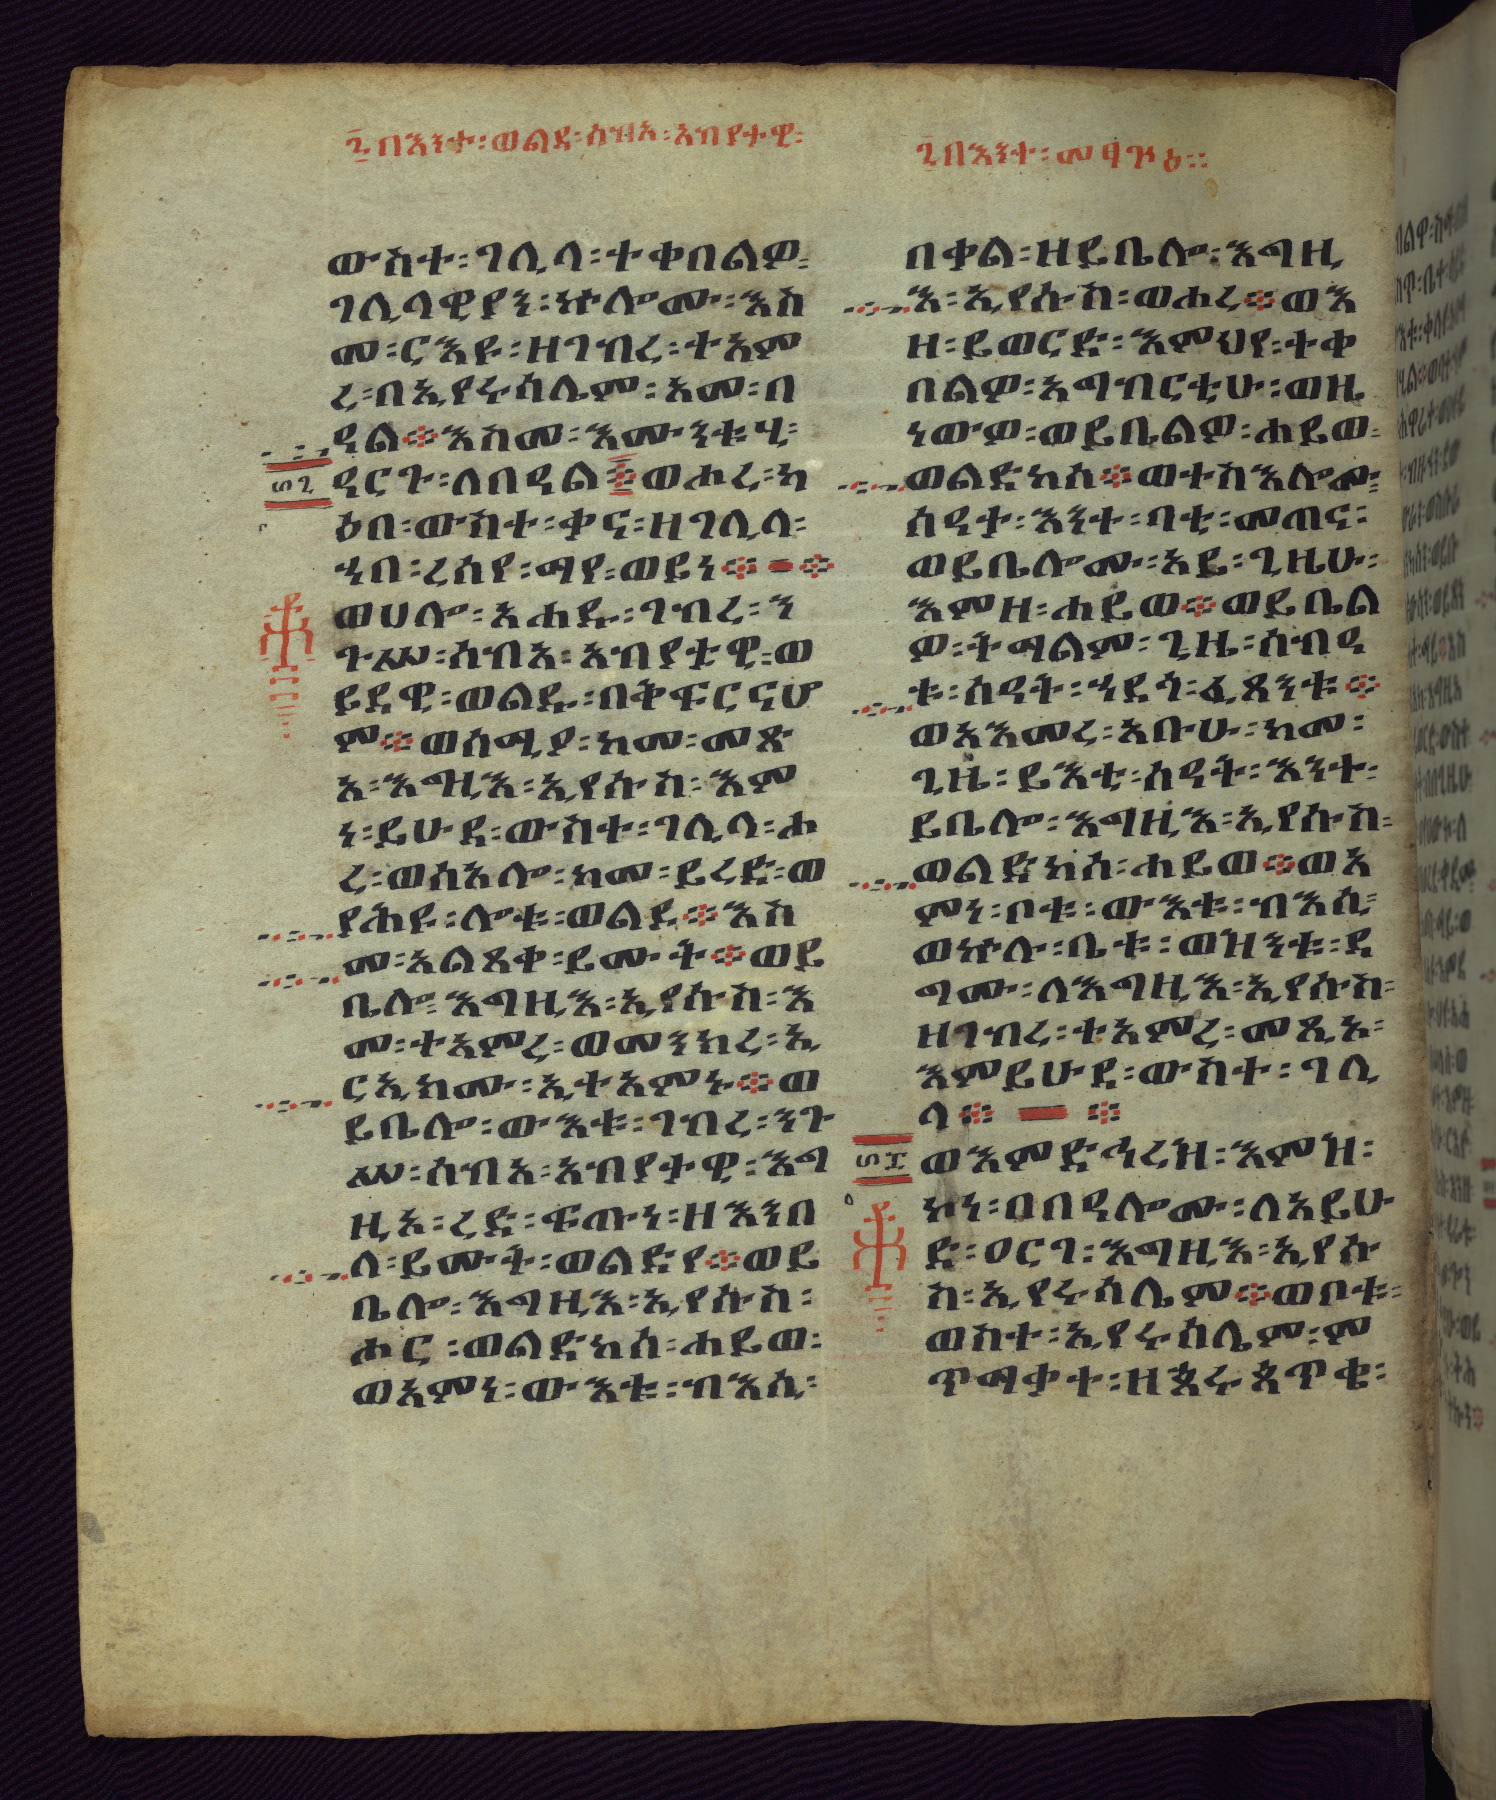 ፪በእንተ፡ወልደ፡ሰብአ፡አብያተዊ፡
ውስተ፡ገሊላ፡ተቀበልዎ፡
ገሊላዊያን፡ኵሎሙ፡እስ
መ፡ርእዩ፡ዘገብረ፡ተአም
ረ፡በኢየሩሳሌም፡አመ፡በ
ዓል፨እስመ፡እሙንቱሂ፡
ዓርጉ፡ለበዓል፨ወሖረ፡ካ
ዕበ፡ውስተ፡ቃና፡ዘገሊላ፡
ኀበ፡ረሰየ፡ማየ፡ወይነ፨
ወሀሎ፡አሐዱ፡ገብረ፡ን
ጉሠ፡ሰብአ፡አብያቲዊ፡ወ
ይደዊ፡ወልዱ፡በቅፍርናሆ
ም፨ወሰሚዖ፡ከመ፡መጽ
አ፡እግዚእ፡ኢየሱስ፡እም
ነ፡ይሁዳ፡ውስተ፡ገሊላ፡ሖ
ረ፡ወሰአሎ፡ከመ፡ይረድ፡ወ
የሕዩ፡ሎቱ፡ወልደ፨እስ
መ፡አልጸቀ፡ይሙት፨ወይ
ቤሎ፡እግዚእ፡ኢየሱስ፡እ
መ፡ተአምረ፡ወመንክረ፡ኢ
ርኢክሙ፡ኢተአምኑ፨ወ
ይቤሎ፡ውእቱ፡ገብረ፡ንጉ
ሠ፡ሰብአ፡አብያተዊ፡እግ
ዚአ፡ረድ፡ፍጡነ፡ዘእንበ
ለ፡ይሙት፡ወልድየ፨ወይ
ቤሎ፡እግዚእ፡ኢየሱስ፡
ሖር፡ወልድከሰ፡ሐይወ፡
ወአምነ፡ውእቱ፡ብእሲ፡
፫በእንተ፡መፃጕዕ፡፡
በቃል፡ዘይቤሎ፡እግዚ
እ፡ኢየሱስ፡ወሖረ፨ወእ
ንዘ፡ይወርድ፡እምህየ፡ተቀ
በልዎ፡አግብርቲሁ፡ወዜ
ነውዎ፡ወይቤልዎ፡ሐይወ፡
ወልድከሰ፨ወተስእሎሙ፡
ሰዓተ፡እንተ፡ባቲ፡መጠና፡
ወይቤሎሙ፡አይ፡ጊዜሁ፡
እምዘ፡ሐይወ፨ወይቤል
ዎ፡ትማልም፡ጊዜ፡ሰብዓ
ቱ፡ሰዓት፡ኀደጎ፡ፈጸንቱ፨
ወአእመረ፡አቡሁ፡ከመ፡
ጊዜ፡ይእቲ፡ሰዓት፡እንተ፡
ይቤሎ፡እግዚእ፡ኢየሱስ፡
ወልድከሰ፡ሐይወ፨ወአ
ምነ፡ቦቱ፡ውእቱ፡ብእሲ፡
ወኵሉ፡ቤቱ፡ወዝንቱ፡ዳ
ግሙ፡ለእግዚእ፡ኢየሱስ፡
ዘገብረ፡ተአምረ፡መጺኦ፡
እምይሁዳ፡ውስተ፡ገሊ
ላ፨
ወእምድኅረዝ፡እምዝ፡
ኮነ፡በበዓሎሙ፡ለአይሁ
ድ፡ዐርገ፡እግዚእ፡ኢየሱ
ስ፡ኢየሩሳሌም፨ወቦቱ፡
ወስተ፡ኢየሩሳሌም፡ም
ጥማቃተ፡ዘጰሩጳጥቄ፡